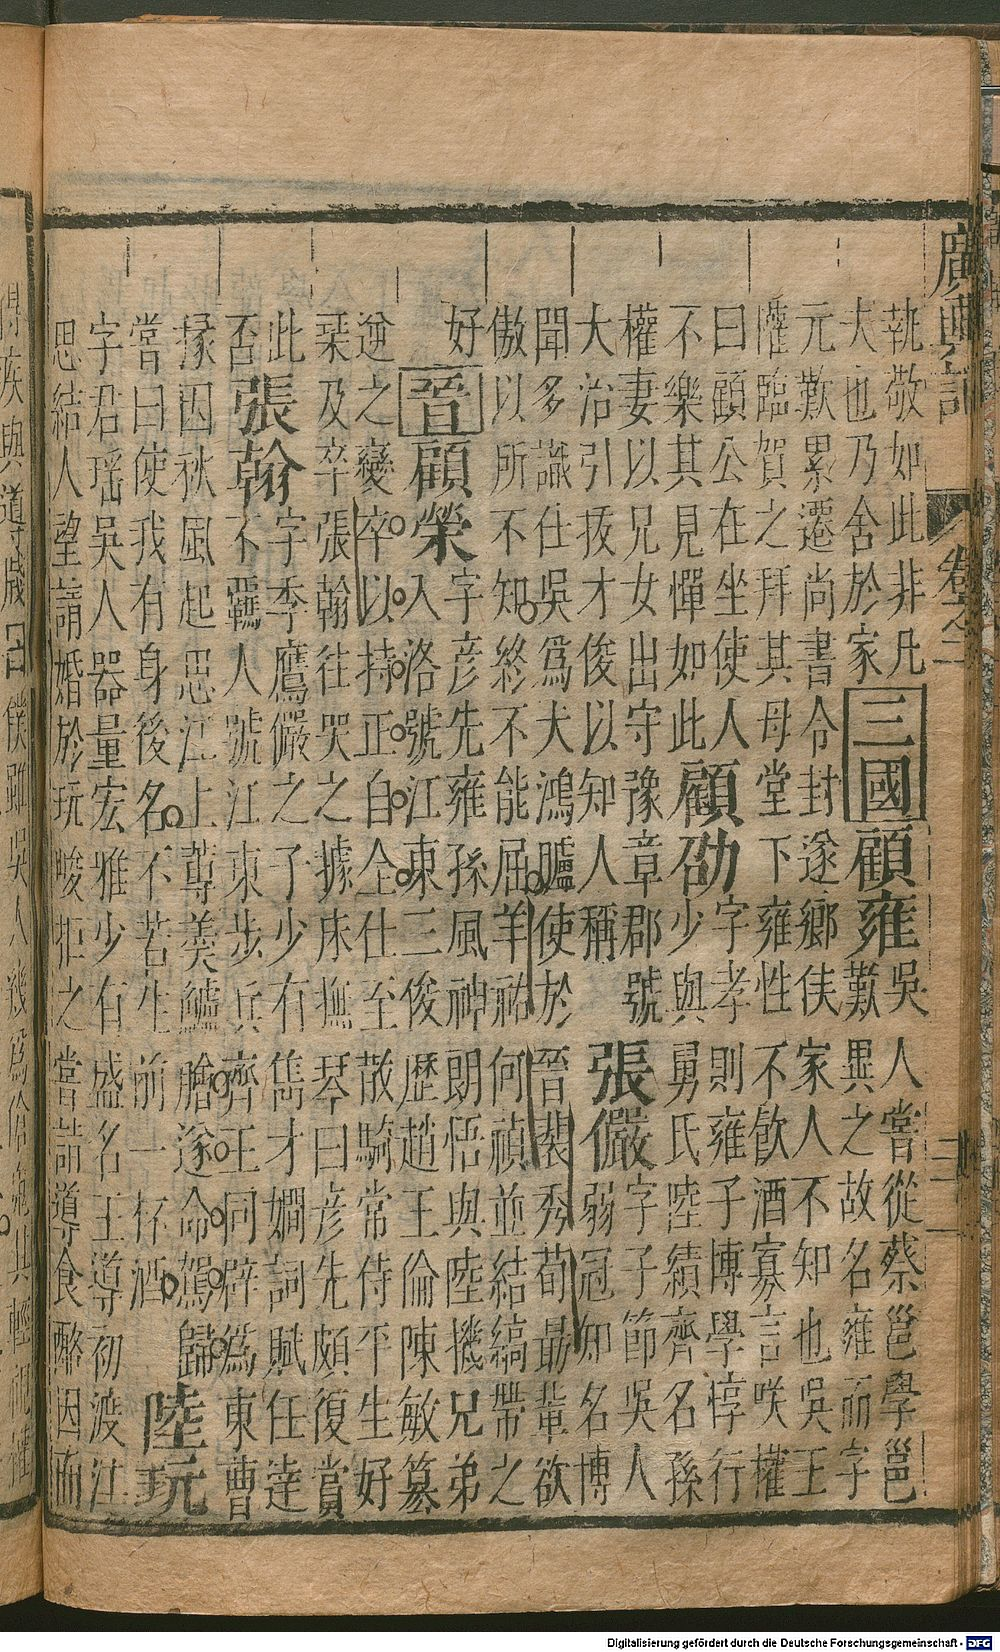 廣輿記 卷之二
執敬如此非凡
夫也乃舍於家
三國
顧雍
吳人嘗從蔡邕學邕
歎異之故名雍而字
元歎累遷尚書令封遂鄉侯家人不知也吳王
權臨賀之拜其母堂下雍性不飲酒寡言咲權
曰顧公在坐使人
不樂其見憚如此
顧劭
字孝則雍子博學惇行
少與舅氏陸績齊名孫
權妻以兄女出守豫章郡號
大治引拔才俊以知人稱
張儼
字子節吳人
弱冠知名博
聞多識仕吳為大鴻臚使於晉裴秀荀勗輩欲
傲以所不知終不能屈羊祜何禎並結縞帶之
好
晉
顧榮
字彥先雍孫風神朗悟與陸機兄弟
入洛號江東三俊歷趙王倫陳敏篡
逆之變卒以持正自全仕至散騎常侍平生好
琹及卒張翰往哭之據床撫琴曰彥先頗復賞
此
否
張翰
字季鷹儼之子少有雋才嫻詞賦任達
不羈人號江東步兵齊王冏辟為東曹
掾因秋風起思江上蓴羹鱸膾遂命駕歸
嘗曰使我有身後名不若生前一杯酒
陸玩
字君瑤吳人器量宏雅少有盛名王導初渡江
思結人望請婚於玩峻拒之嘗詣導食酪因而
Digitalisierung gefördert durch die Deutsche Forschungsgemeinschaft - DFG